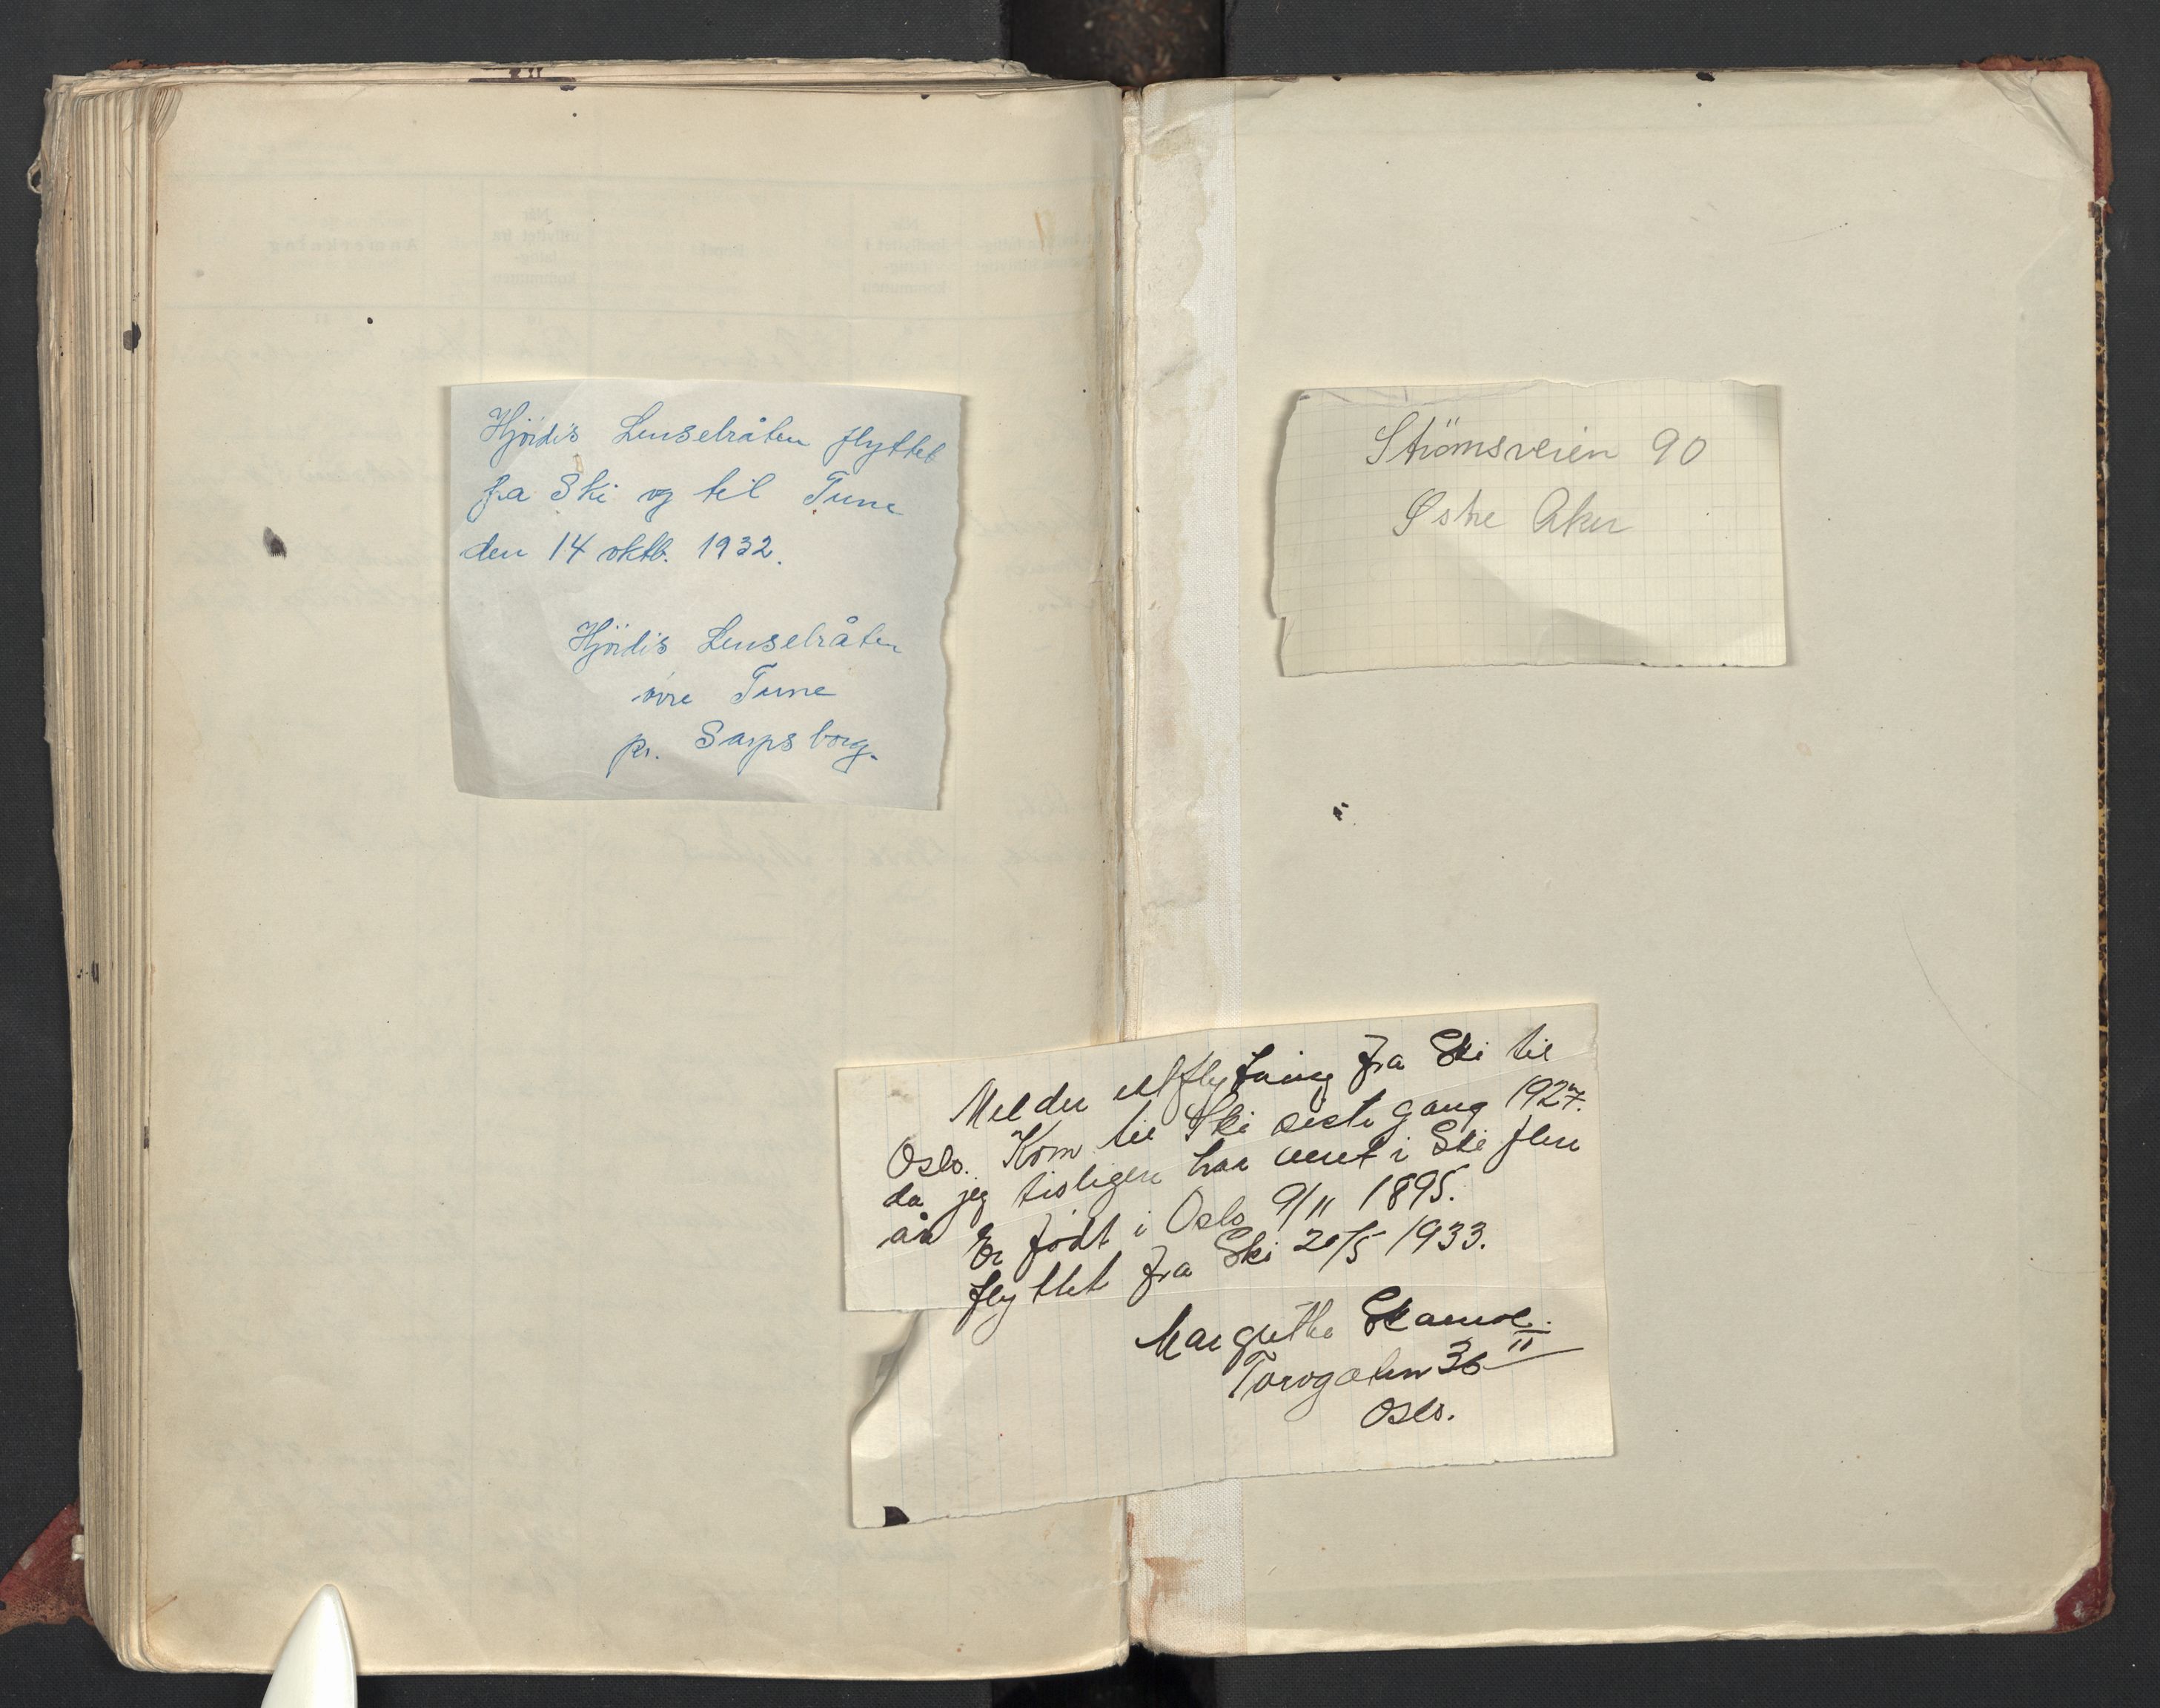 Hjördis Lenselråten flyttet
fra Ski og til Tune
den 14 oktb. 1932.
Hjördis Lenselråten
övre Tune
pr. Sarpsborg.
Strömsveien 90
Østre Aker
Melder utflytning fra Ski til
Oslo. Kom til Ski siste gang 1927.
da jeg tidligere har været i Ski flere
år Er født i Oslo 9/11 1895.
flyttet fra Ski 20/5 1933.
Margrethe
Torvgaten 36 II
Oslo.